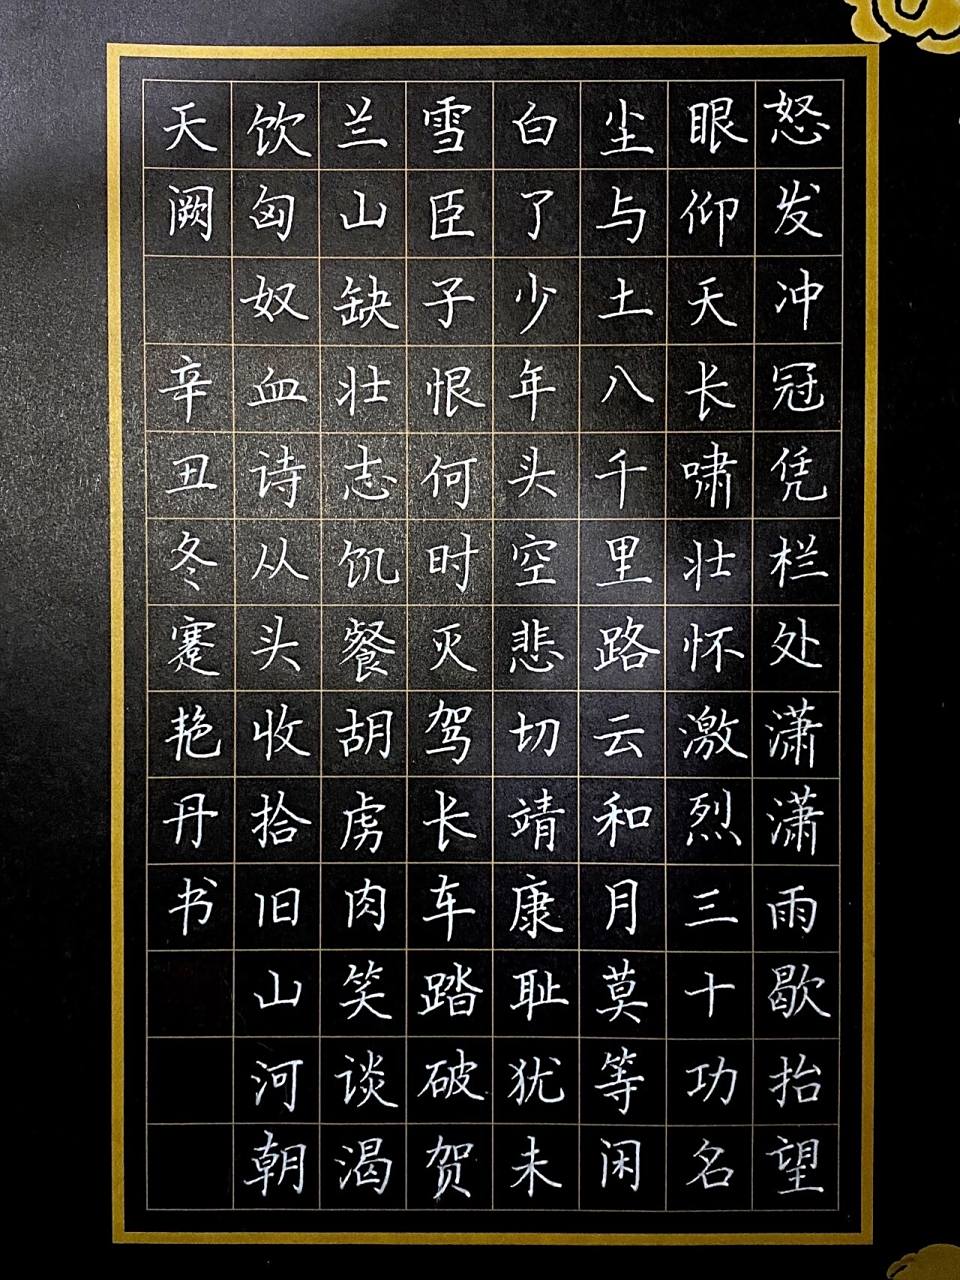 怒发冲冠凭栏处潇潇雨歇抬望
眼仰天长啸壮怀激烈三十功名
尘与土八千里路云和月莫等闲
白了少年头空悲切靖康耻犹未
雪臣子恨何时灭驾长车踏破贺
兰山缺壮志饥餐胡虏肉笑谈渴
饮匈奴血诗从头收拾旧山河朝
天阙
辛丑冬蹇艳丹书